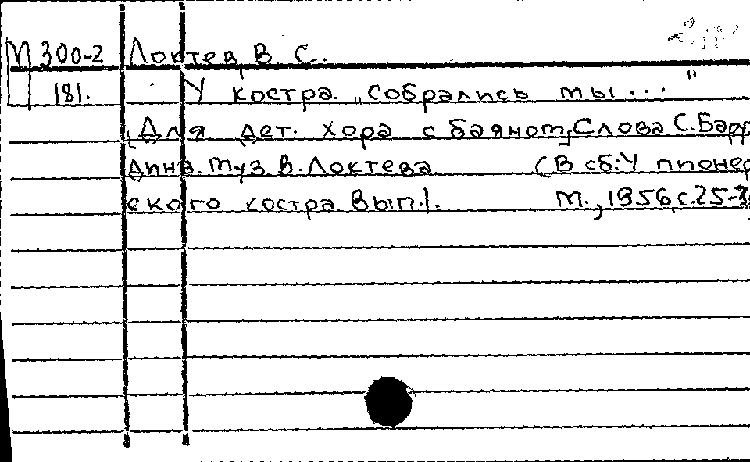 М 300-2 Локтев, В. С.
181. У костра. „Собрались мы..."
[Для дет. хора с баяном]. Слова С. Барр
дина. Муз. В. Локтева (В сб: У пионер
ского костра. Вып.1. М., 1956, с.25-